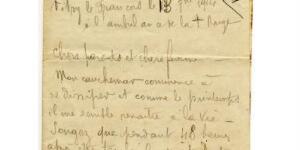 Vitry le François le 13 7bre 1914
à l'ambulance de la + Rouge
Chers parents et chère femme
Mon cauchemar commence à
se dissiper et comme le printemps
il me semble renaître à la Vie -
Songez que pendant 48 heures